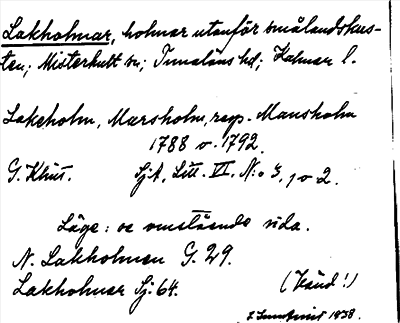 Lakholmar, holmar utanför smålandskus-
ten; Misterhult sn; Tunaläns hd; Kalmar l.
Lakeholm, Marsholm, resp. Mansholm
1788 o. 1792.
G. Klint. Sj.A, Litt. VI, N:o 3, 1 o 2.
Läge: se omstående sida.
N. Lakholmen G. 29.
Lakholmar Sj. 64. (Vänd!)
1938.